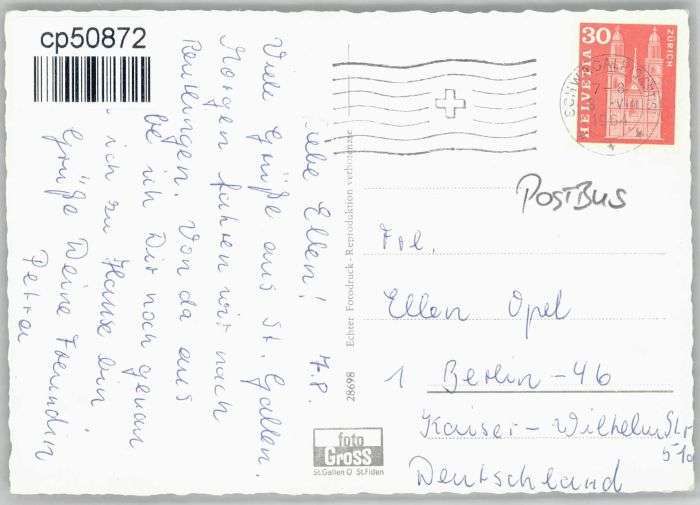 cp50872
Liebe Ellen! 7.8.
Viele Grüße aus St. Gallen.
Morgen fahren wir nach
Reutlingen. Von da aus
be ich Dir noch genau
ich zu Hause bin
Grüße Deine Freundin
Petra
28698 Echter Fotodruck - Reproduktion verboten
foto
Gross
St.Gallen O St.Fiden
30
HELVETIA
ZÜRICH
1964
POSTBUS
Frl.
Ellen Opel
1 Berlin-46
Kaiser-Wilhelm Str
51a
Deutschland